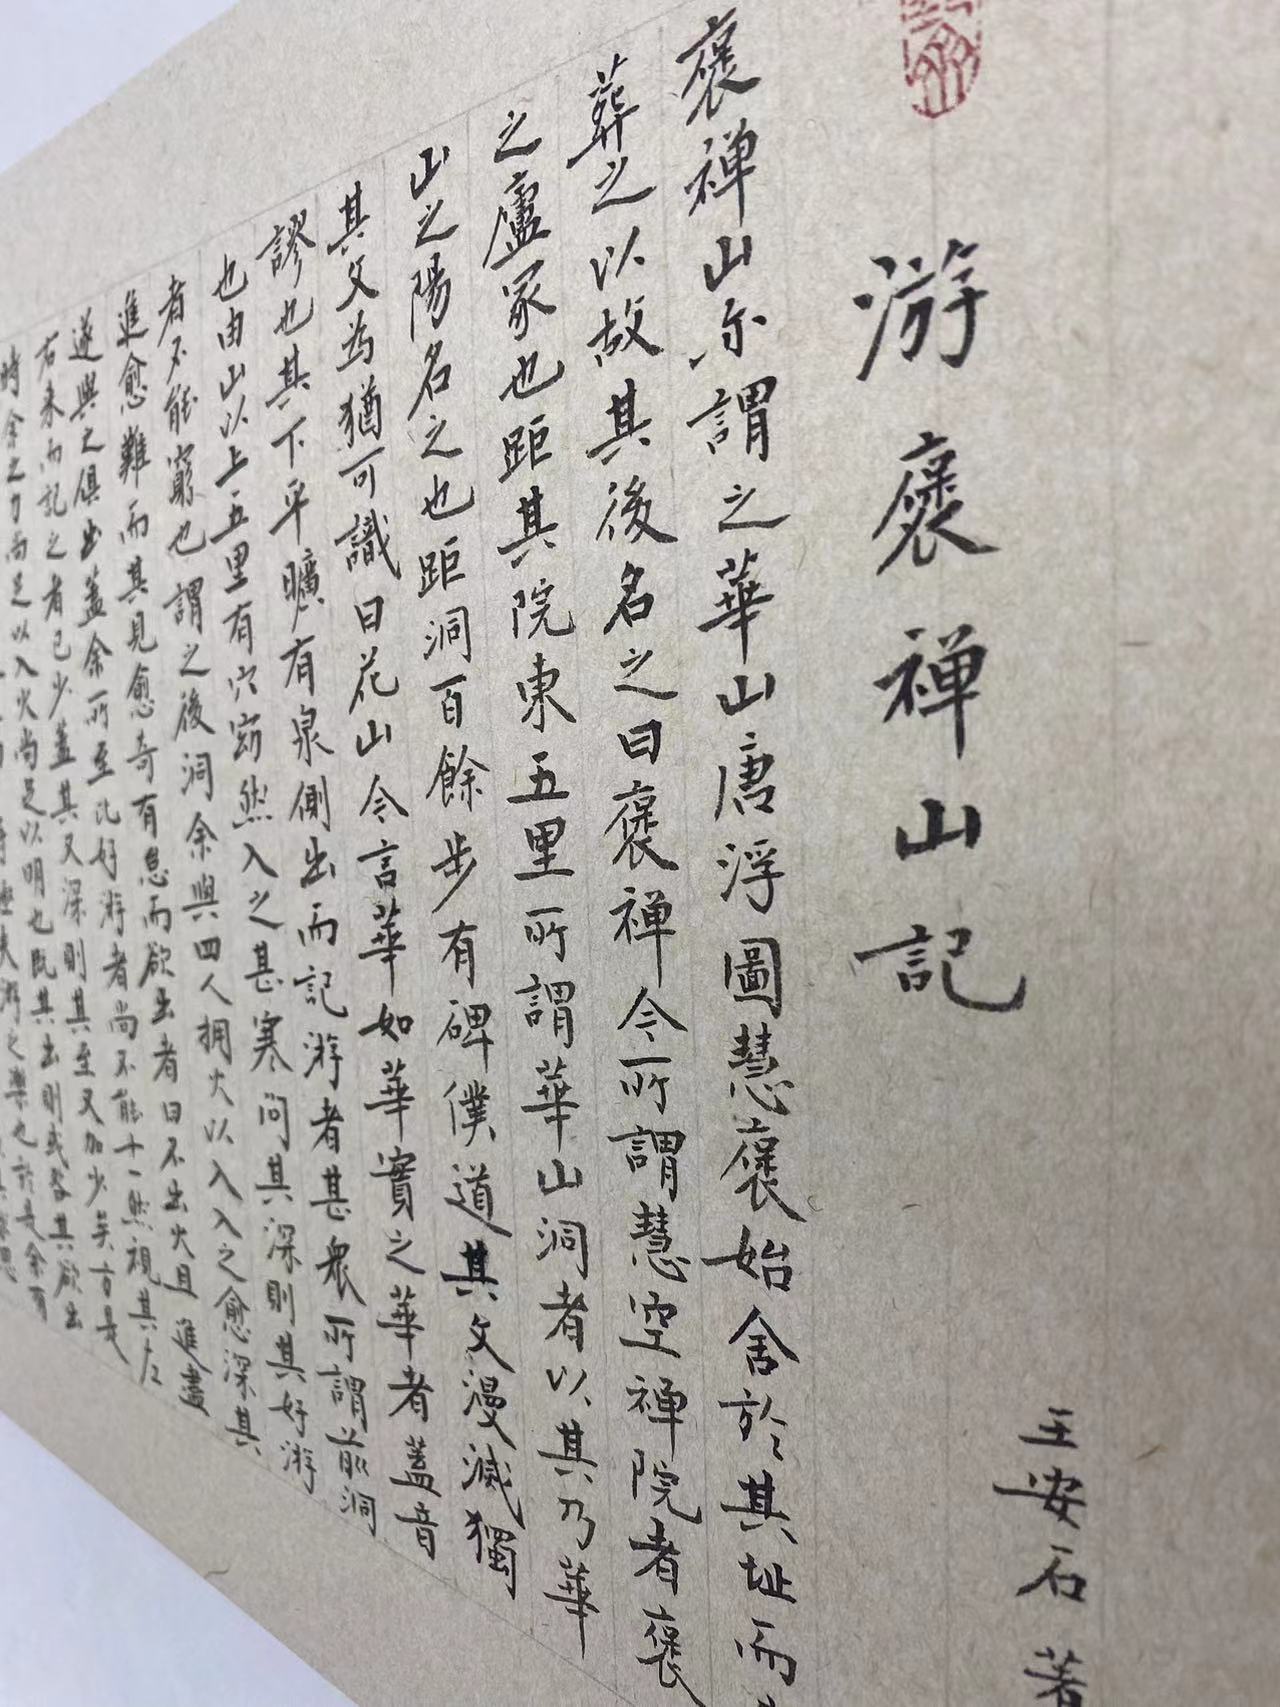 游褒禅山記
王安石著
褒禅山亦謂之華山唐浮圖慧褒始舍於其址而
葬之以故其後名之曰褒禅今所謂慧空禅院者褒
之廬冢也距其院東五里所謂華山洞者以其乃華
山之陽名之也距洞百餘步有碑僕道其文漫滅獨
其文為猶可識曰花山今言華如華實之華者蓋音
謬也其下平曠有泉側出而記游者甚衆所謂前洞
也由山以上五里有穴窈然入之甚寒問其深則其好游
者不能窮也謂之後洞余與四人拥火以入入之愈深其
進愈難而其見愈奇有怠而欲出者曰不出火且進盡
遂與之俱出蓋余所至比好游者尚不能十一然視其左
右来而記之者已少蓋其又深則其至又加少矣方是
時余之力尚足以入火尚足以明也既其出則或咎其欲出
夫游之樂也於是余有